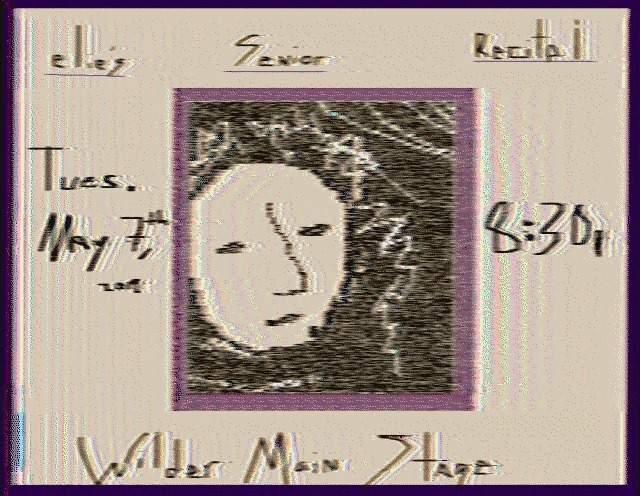 elie's Senior Recital
Tues.
May 7th,
2019
8:30p
Wilder Main Stage